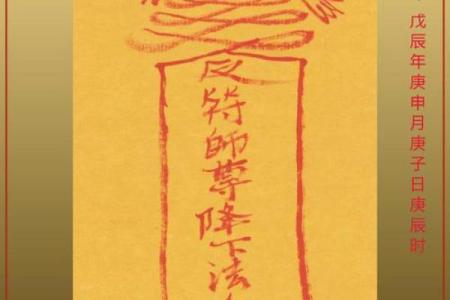 戊辰年庚申月庚子日庚辰时
反符師尊降下法